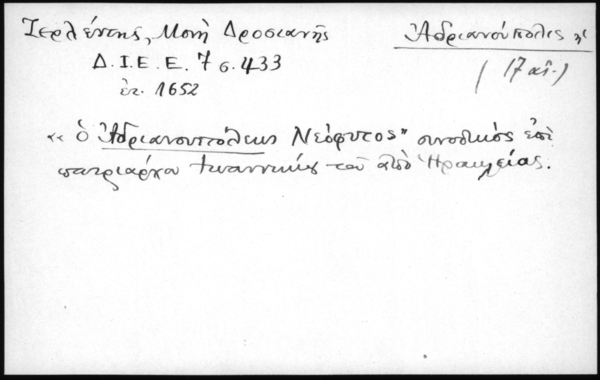 Ζερλέντης, Μονὴ Δροσιανῆς
Ἀδριανούπολις
Δ.Ι.Ε.Ε. 7 σ. 433
(17 αἰ.)
ἐτ. 1652
« ὁ Ἀδριανουπόλεως Νεόφυτος" συνοδικός ἐπὶ
πατριάρχου Ἰωαννικίου τοῦ ἀπὸ Ἡρακλείας.